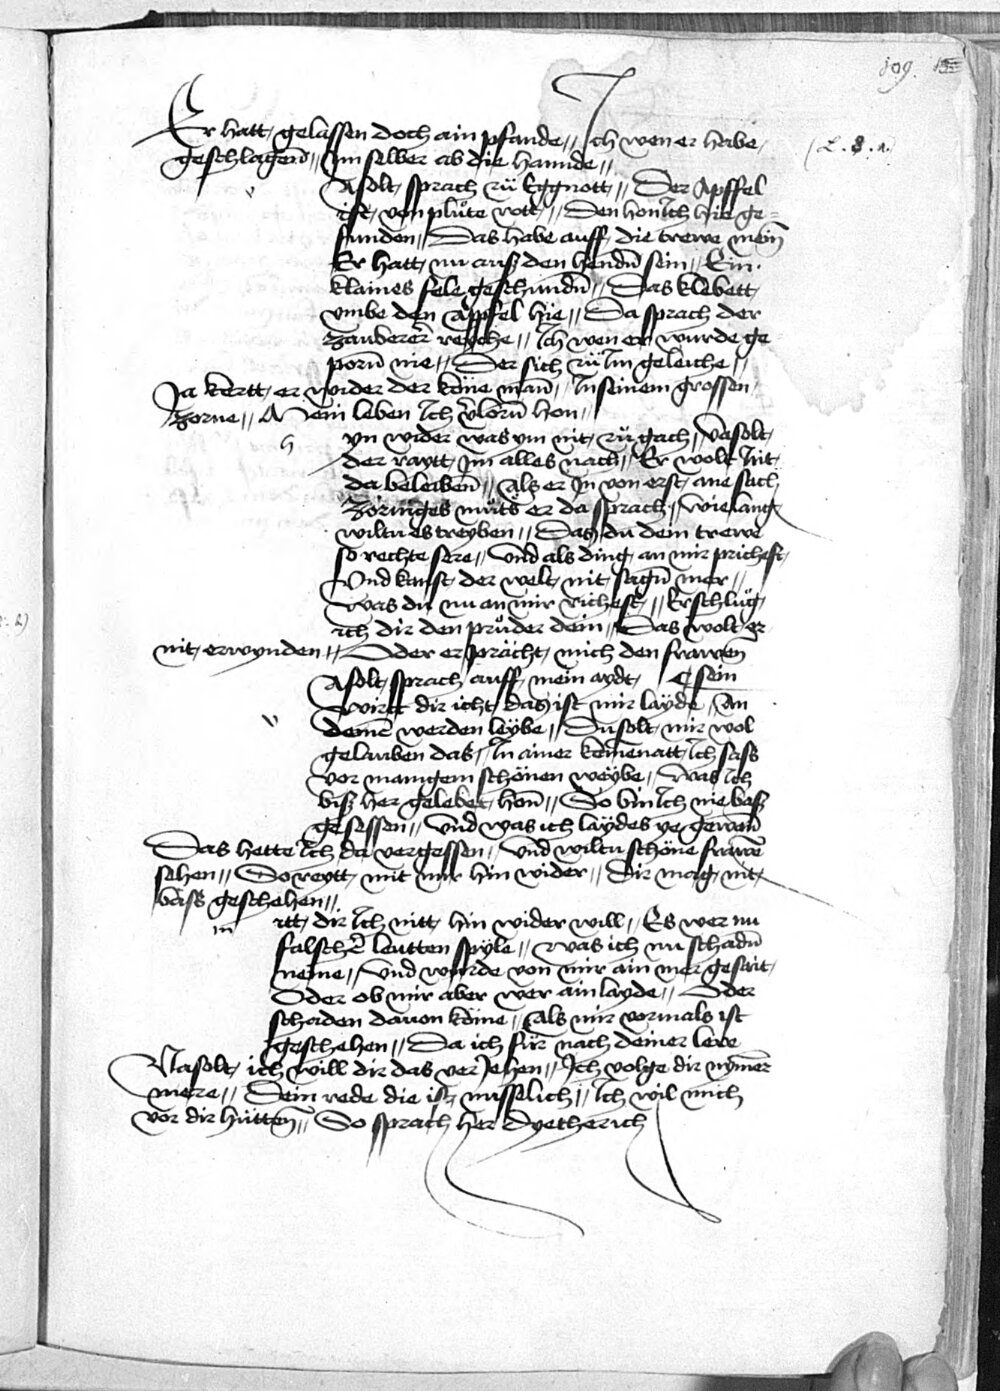 109.
Er hatt gelassen doch ain pfande // Ich wen er habe
geschlagenn // Im selber ab die hannde //
Asolt sprach zü Eggnott // Der Apffel
ist von plůte rott // Den hon Ich hie ge=
funden // Das habe auff die trewe mein
Er hatt nu auß den henden̄ sein // Ein
klaines fele geschundn̄ // Das klebett
vmbe den Apffel hie // Da sprach der
zauberer̄ reyche // Ich wen er wurde ge
porn̄ nie // Der sich zü Im geleiche //
Ja kertt er wider der köne man̄ // In seinem grossen
zorne // Mein leben Ich v̄lorn̄ hon //
h
yn wider was ym nit zü gach // Vasolt
der raytt Im alles nach // Er wolt nit
da beleiben̄ // Als er In von erst ane sach
Zoringes můts er da sprach // wie lang
wiltu es treyben // Das du dein trewe
so rechte sere // Vnd als ding an mir prichest
Vnd kanst der welt nit sagn̄ mer //
Was du nu an mir richest // Er schlůg
ich dir den průder dein // Das wolt er
nit erwynden // Oder er prächt mich den frawen
Asolt sprach auff mein aydt // ¶ sein
Wirtt dir icht das ist mir layde // An
deinē werden leybe // Du solt mir wol
gelauben das // In ainer kemenatt Ich sass
vor manigem schönen weybe // Was Ich
biß her gelebet hon̄ // So bin Ich nie baß
gesessen // Vnd was ich laydes ye gewan̄
Das hette Ich da vergessen // Vnd wiltu schöne frawē
sehen // So reytt mit mir hin wider // Dir mag nit
bass geschehen //
m
itt dir Ich nitt hin wider will // Es wer nu
falscher̄ leutten spyle // Was ich nu schadn̄
neme // Vnd wurde von mir ain mer gesait
Oder ob mir aber wer ain layde // Oder
schaden dauon köme // Als mir vormals ist
geschehen // Da ich für nach deiner lere
Vasolt ich will dir das ver Jehen // Ich volge dir nymer̄
mere // Dein rede die ist misselich // Ich wil mich
vor dir hütten̄ // So sprach her Dyetherich